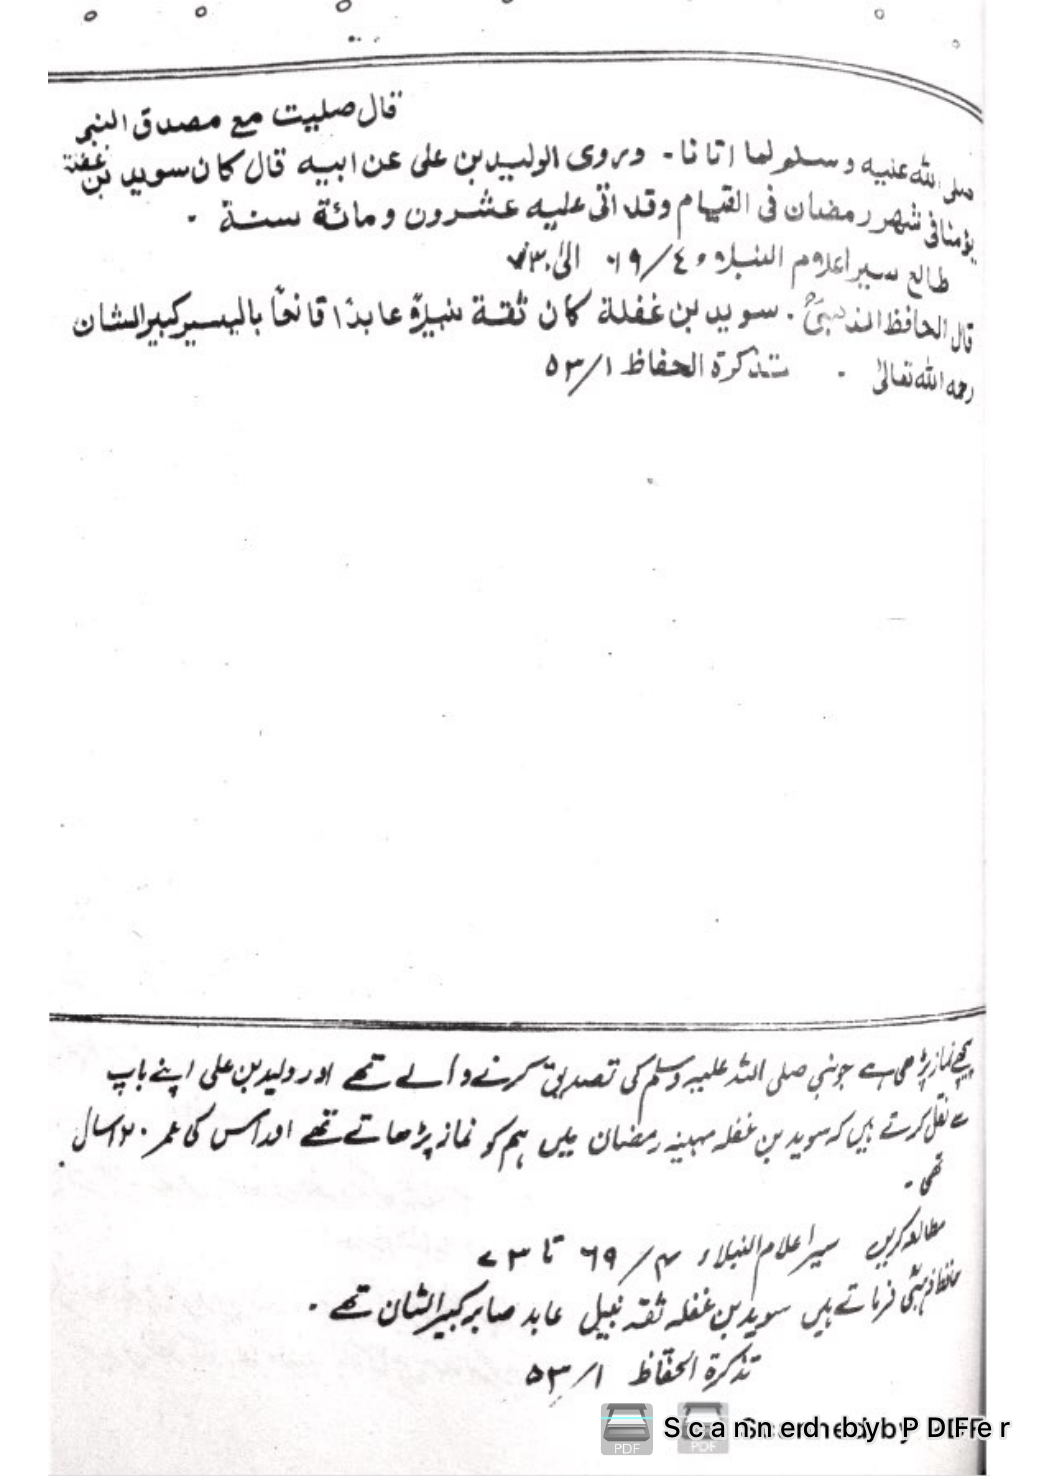 قال صليت مع مصدق النبى
صلى الله عليه وسلم لما اتانا - ويروى الوليد بن على عن ابيه قال كان سويد بن غفلة
يؤمنا فى شهر رمضان فى القيام وقد اتى عليه عشرون ومائة سنة -
طالع سير اعلام النبلاء ٤/٦٩ الى ٧٣
قال الحافظ الذهبىؒ . سويد بن غفلة كان ثقة نبيلاً عابدًا قانعًا باليسير كبير الشان
رحمه الله تعالىٰ - تذكرة الحفاظ ١/٥٣
پیچھے نماز پڑھی ہے جو نبی صلی اللہ علیہ وسلم کی تصدیق کرنے والے تھے اور ولید بن علی اپنے باپ
سے نقل کرتے ہیں کہ سوید بن غفلہ مہینہ رمضان میں ہم کو نماز پڑھاتے تھے اور اس کی عمر ۱۲۰ سال
تھی -
مطالعہ کریں سیر اعلام النبلاء ۴/۶۹ تا ۷۳
حافظ ذہبیؒ فرماتے ہیں سوید بن غفلہ ثقہ نبیل عابد صابر کبیر الشان تھے -
تذکرة الحفاظ ۱/۵۳
PDF PDF Scanned by PDFer